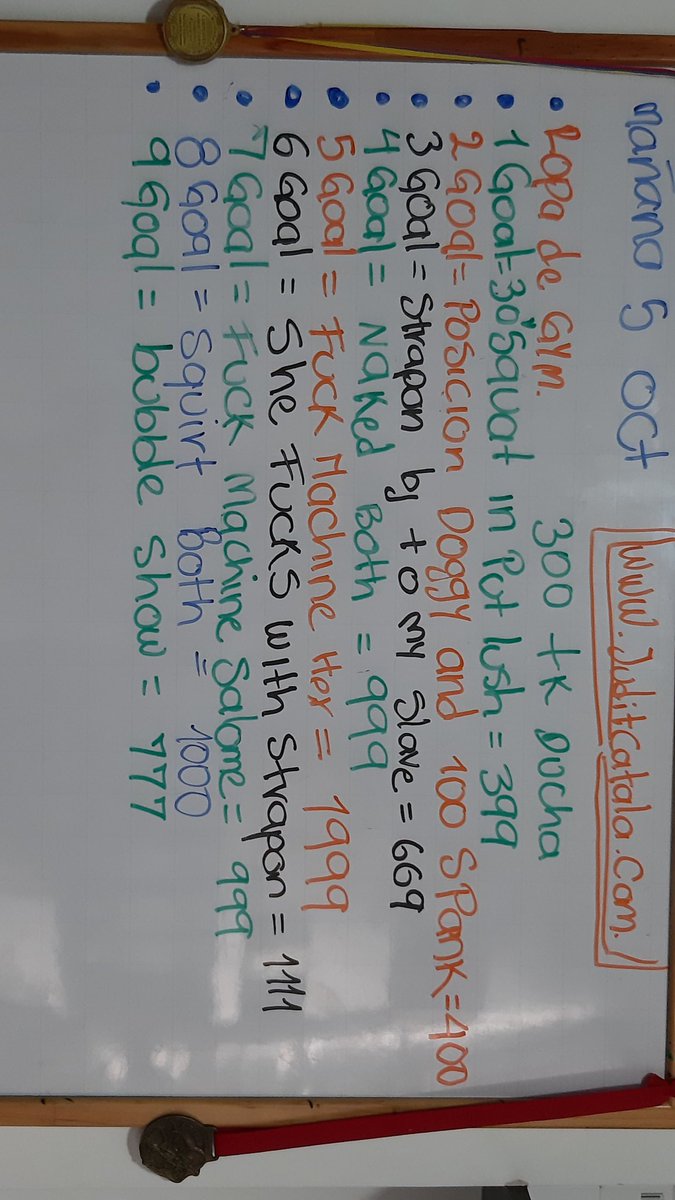 mañana 5 Oct
www.JuditCatala.Com.
300 tk Ducha
• Ropa de GYM.
• 1 Goal = 30" Squat in Put lush = 399
• 2 Goal = Posicion Doggy and 100 SPank = 400
• 3 Goal = Strapon bj to my slave = 669
• 4 Goal = Naked Both = 999
• 5 Goal = Fuck Machine Her = 1999
• 6 Goal = She Fucks with strapon = 1111
• 7 Goal = Fuck Machine Salome = 999
• 8 Goal = Squirt Both = 1000
• 9 Goal = bubble show = 777